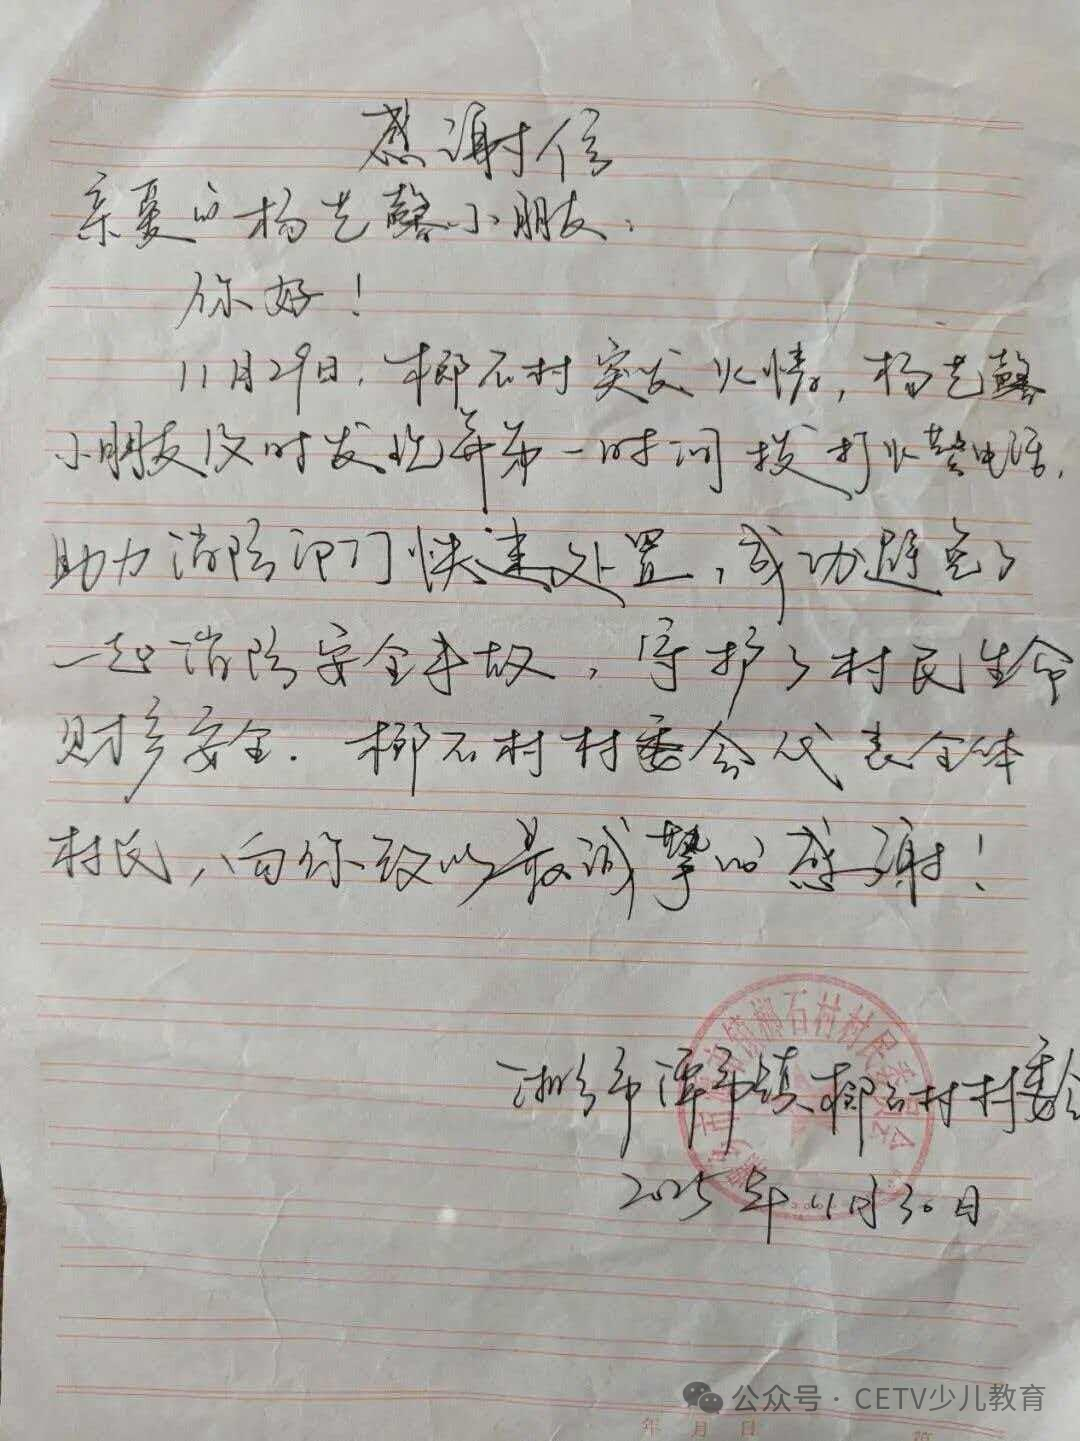 感谢信
亲爱的杨艺馨小朋友：
你好！
11月29日，椰石村突发火情，杨艺馨
小朋友及时发现并第一时间拨打火警电话，
助力消防部门快速处置，成功避免了
一起消防安全事故，守护了村民生命
财产安全。椰石村村委会代表全体
村民，向你致以最诚挚的感谢！
湘乡市潭市镇椰石村村委会
2025年11月30日
年 月 日
公众号 · CETV少儿教育